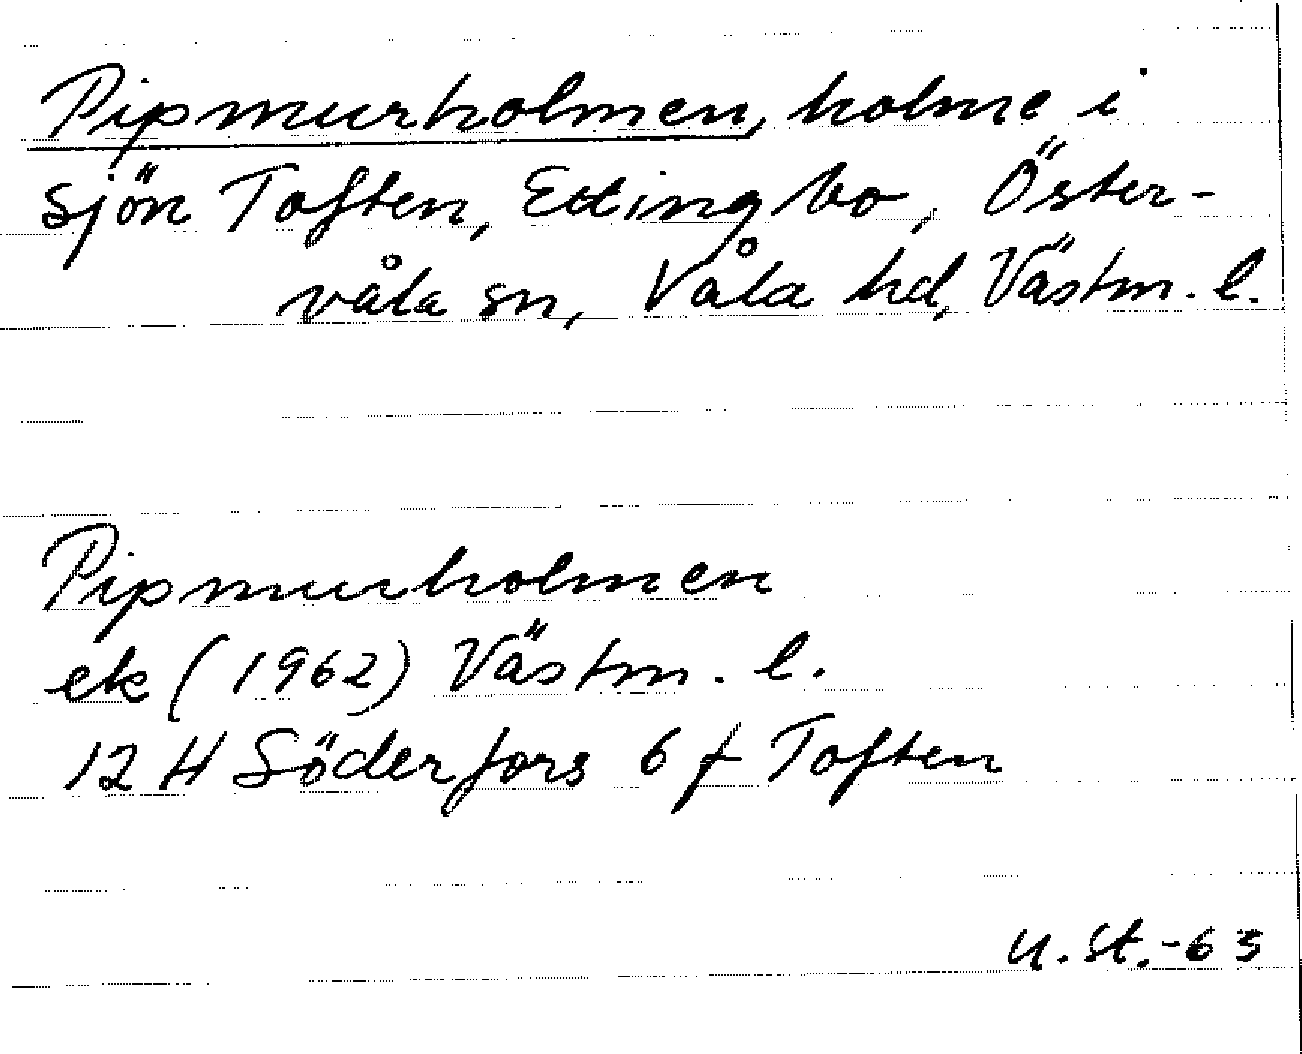 Pipmurholmen, holme i
sjön Toften, Ettingbo, Öster-
våla sn, Våla hd, Västm. l.
Pipmurholmen
ek (1962) Västm. l.
12 H Söderfors 6 f Toften
U. St. -63